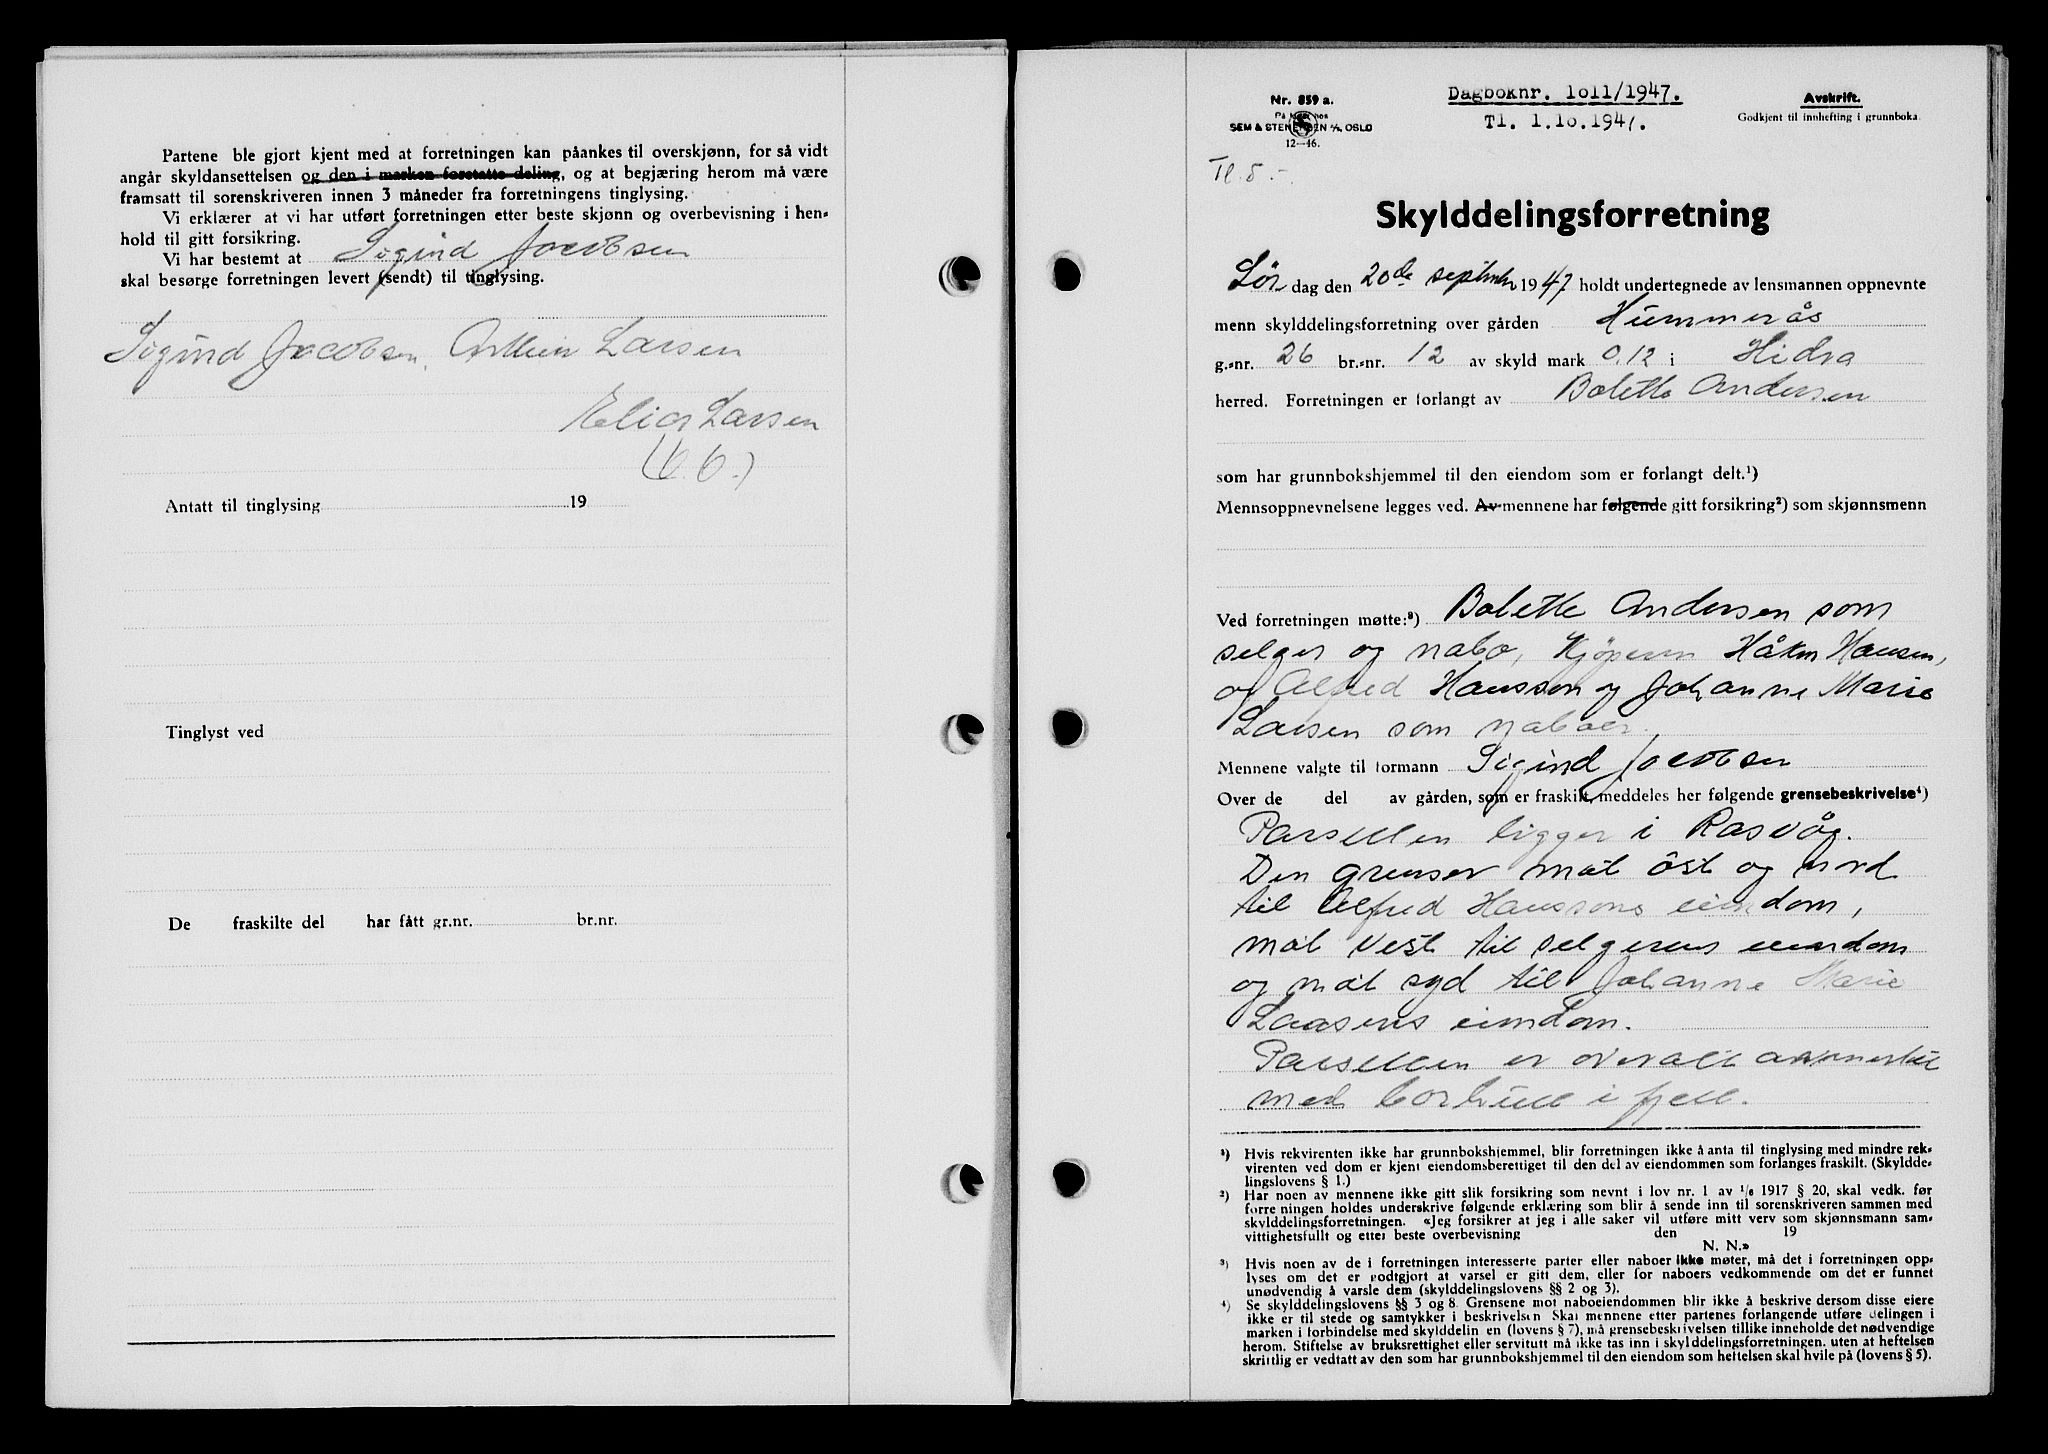 Partene ble gjort kjent med at forretningen kan påankes til overskjønn, for så vidt
angår skyldansettelsen og den i marken foretatte deling, og at begjæring herom må være
framsatt til sorenskriveren innen 3 måneder fra forretningens tinglysing.
Vi erklærer at vi har utført forretningen etter beste skjønn og overbevisning i hen-
hold til gitt forsikring.
Vi har bestemt at Sigind Jacobsen
skal besørge forretningen levert (sendt) til tinglysing.
Sigind Jacobsen. Larsen
Elias Larsen
Antatt til tinglysing 19
Tinglyst ved
De fraskilte del har fått gr.nr. br.nr.
Nr. 859 a.
På lager hos
SEM & STENERSEN A/S, OSLO
12-46.
Dagboknr. 1011/1947.
Tl. 1.10.1947.
Avskrift.
Godkjent til innhefting i grunnboka.
Tl. 5.-
Skylddelingsforretning
Lør dag den 20de september 1947 holdt undertegnede av lensmannen oppnevnte
menn skylddelingsforretning over gården Hummerås
g.-nr. 26 br.-nr. 12 av skyld mark 0.12 i Hidra
herred. Forretningen er forlangt av Bolette Andersen
som har grunnbokshjemmel til den eiendom som er forlangt delt.¹)
Mennsoppnevnelsene legges ved. Av mennene har følgende gitt forsikring²) som skjønnsmenn
Ved forretningen møtte:³) Bolette Andersen som
selger og nabo, Kjøperen Håkon Hansen,
og Alfred Hansson og Johanne Marie
Larsen som naboer.
Mennene valgte til formann Sigind Jacobsen
Over de del av gården, som er fraskilt, meddeles her følgende grensebeskrivelse⁴)
Parsellen ligger i Rasvåg.
Den grenser mot öst og nord
til Alfred Hanssons eiendom,
mot vest til selgerens eiendom
og mot syd til Johanne Marie
Larsens eiendom.
Parsellen er overalt avmerket
med borhull i fjell.
¹) Hvis rekvirenten ikke har grunnbokshjemmel, blir forretningen ikke å anta til tinglysing med mindre rek-
virenten ved dom er kjent eiendomsberettiget til den del av eiendommen som forlanges fraskilt. (Skyldde-
lingslovens § 1.)
²) Har noen av mennene ikke gitt slik forsikring som nevnt i lov nr. 1 av 1/6 1917 § 20, skal vedk. før
forretningen holdes underskrive følgende erklæring som blir å sende inn til sorenskriveren sammen med
skylddelingsforretningen. «Jeg forsikrer at jeg i alle saker vil utføre mitt verv som skjønnsmann sam-
vittighetsfullt og etter beste overbevisning den 19
N. N.»
³) Hvis noen av de i forretningen interesserte parter eller naboer ikke møter, må det i forretningen opp-
lyses om det er godtgjort at varsel er gitt dem, eller for naboers vedkommende om det er funnet
unødvendig å varsle dem (skylddelingslovens §§ 2 og 3).
⁴) Se skylddelingslovens §§ 3 og 8. Grensene mot naboeiendommen blir ikke å beskrive dersom disse eiere
ikke er til stede og samtykker i beskrivelsen Skal mennene etter partenes forlangende utføre delingen i
marken i forbindelse med skylddelin en (lovens § 7), må grensebeskrivelsen tillike inneholde det nødvendige
herom. Stiftelse av bruksrettighet eller servitutt må ikke tas inn i skylddelingsforretningen. uten at heftelsen
skriftlig er vedtatt av den som har grunnbokshjemmel til den eiendom som heftelsen skal hvile på (lovens § 5).